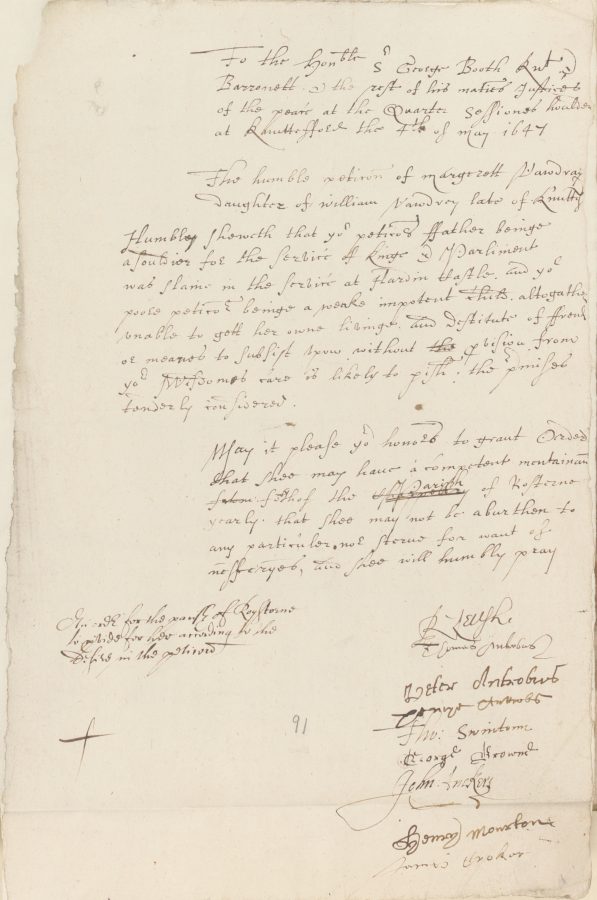 To the Honble Sr George Booth Knt &
Barronett & the rest of his maties Justices
of the peace at the Quarter Sessiones houlden
at Knuttesford the 4th of may 1647
The humble peticon of margerett Vawdray
daughter of William Vawdrey late of Knuttsf
Humbley sheweth that yor peticors ffather beinge
a souldier for the service of Kinge & Parliment
was slaine in the service at Hardin Castle. and yor
poore peticor beinge a weake impotent Child. altogether
unable to gett her owne livinge. and destitute of ffreinds
or meanes to subsist upon. without the pvision from
yor Worshipps care is likely to pish. the pmises
tenderly considered.
May it please yor honors to grant Order
that shee may have a competent mentainance
from forth of the Parish of Rosterne
yearly. that shee may not be a burthen to
any particuler, nor sterve for want of
necessaryes, and shee will humbly pray
An order for the parish of Roysterne
to pvide for her according to the
desire in the peticon
Thomas Antrobus
Peter Antrobus
Tho: Swinton
George Browne
John
91
Henry Mourton
James Croker